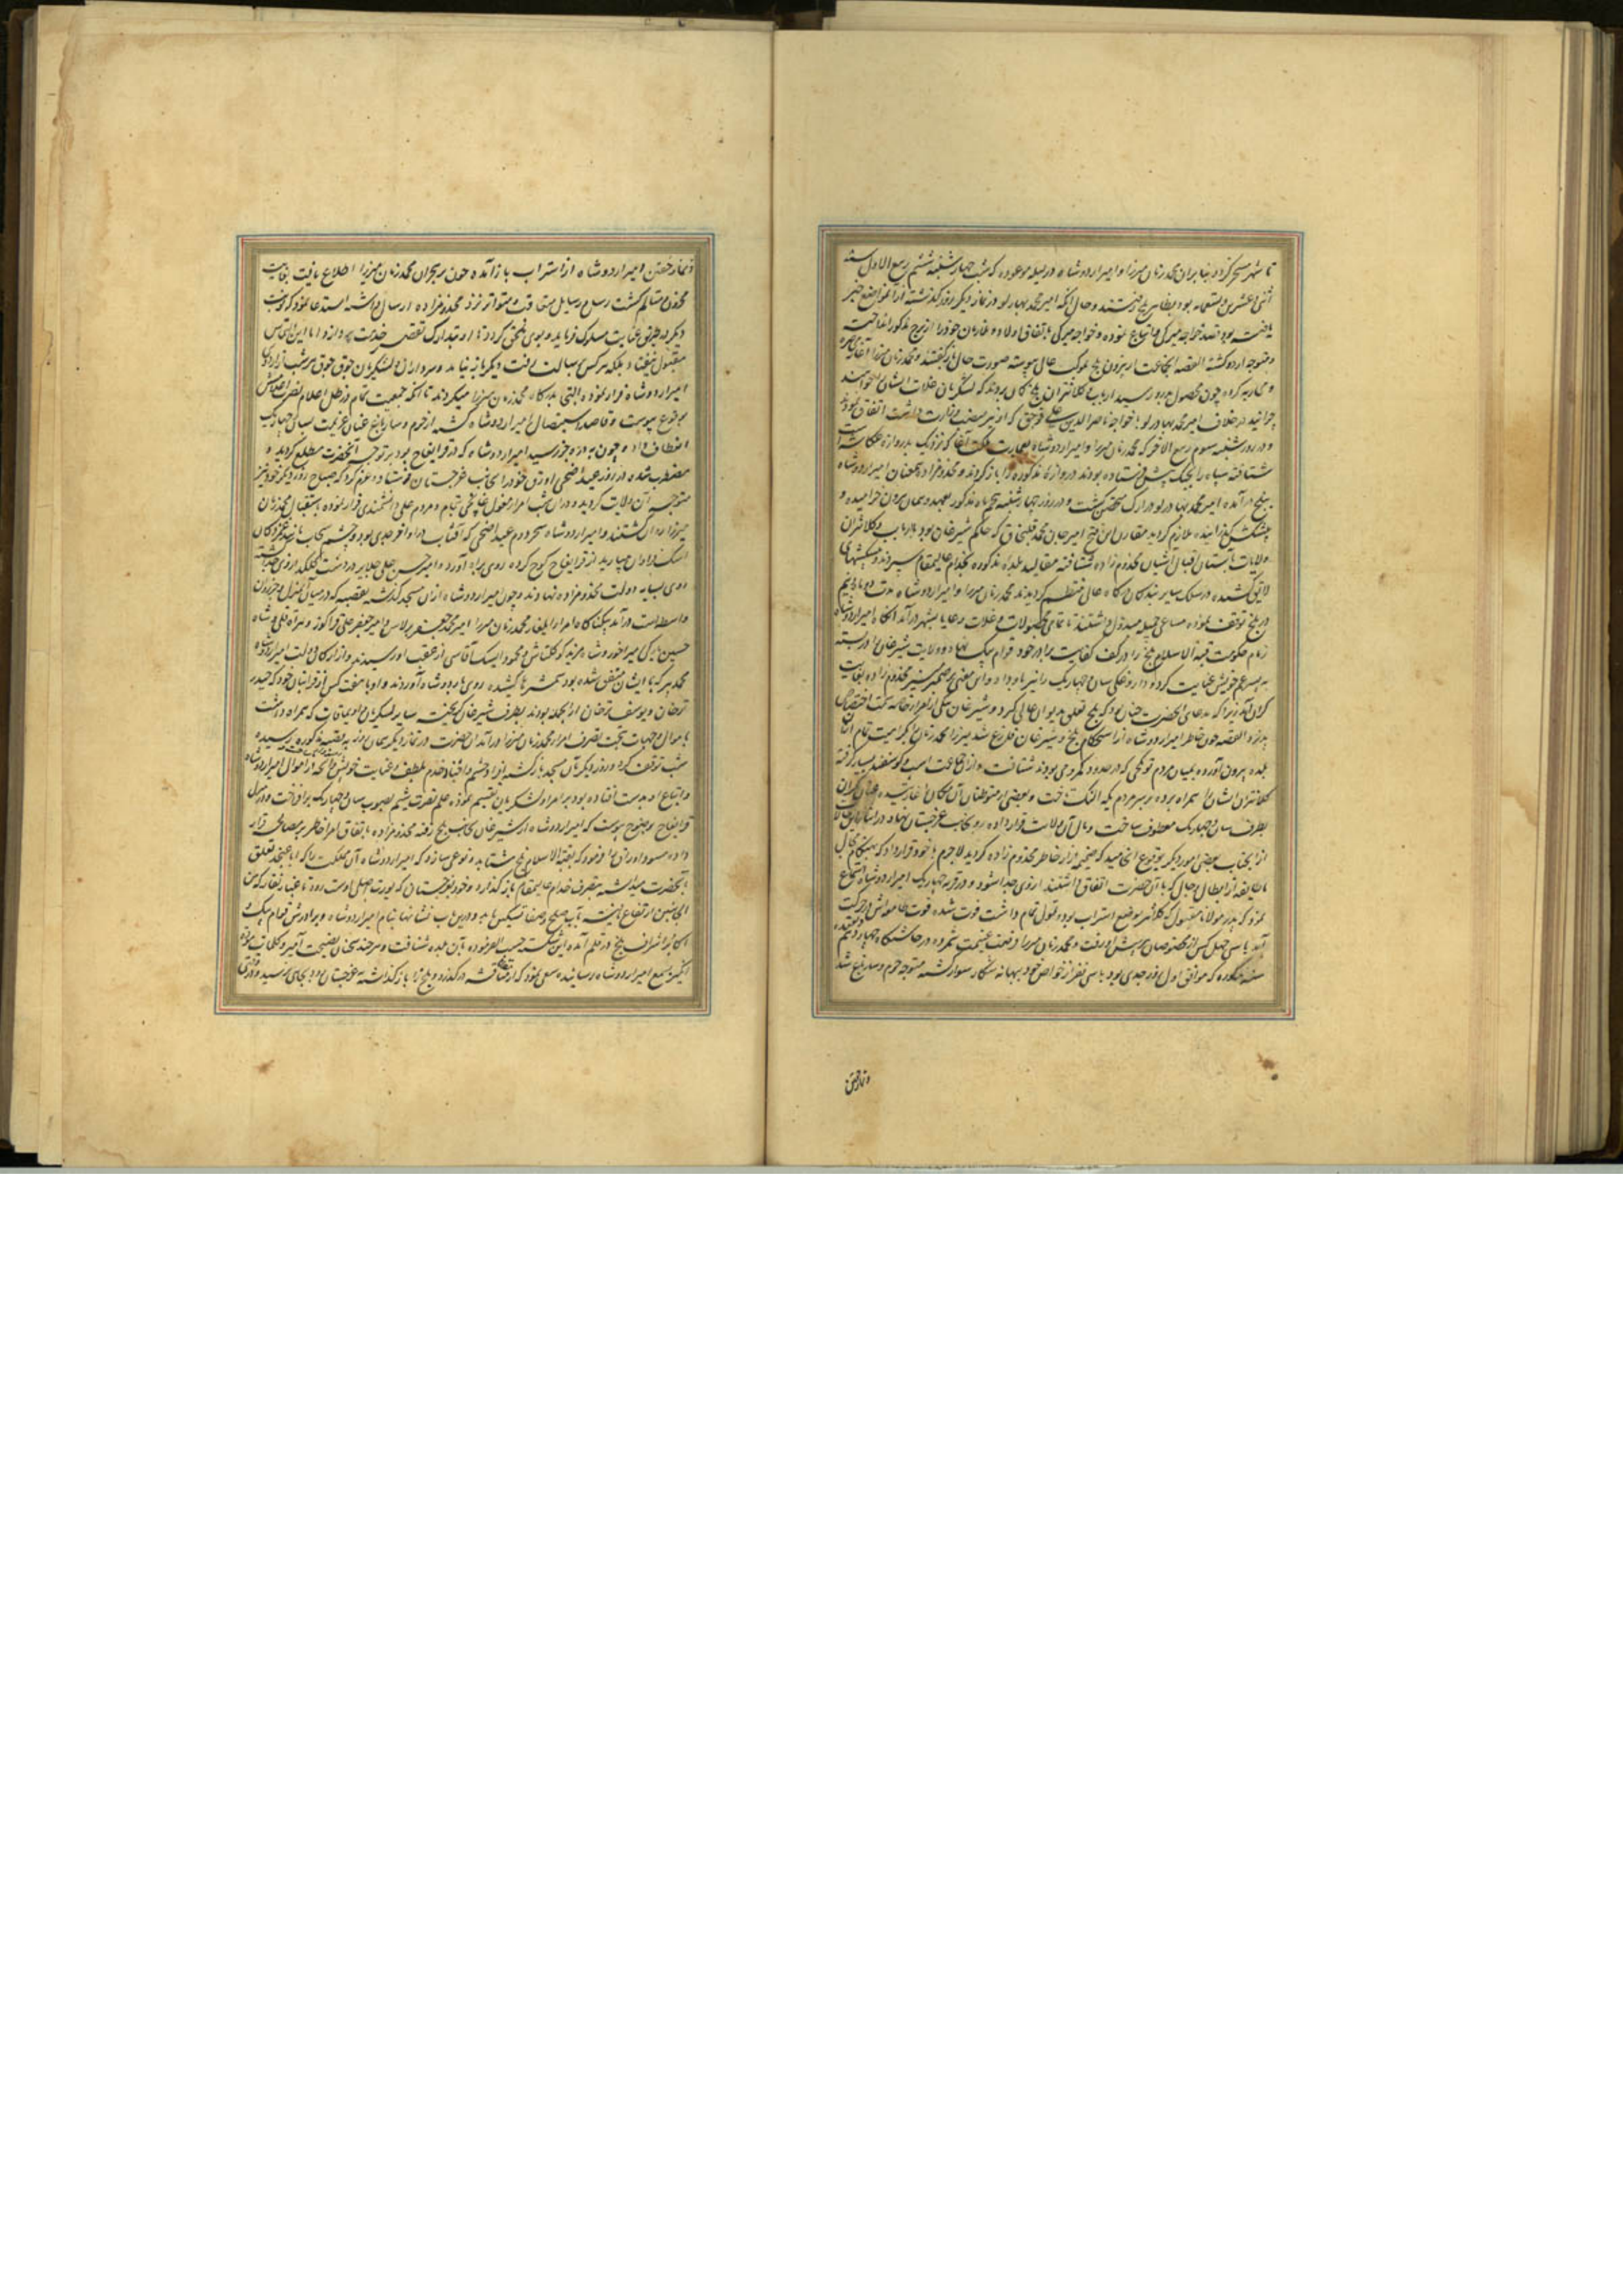 تا شهر مسخر کردد بنابران محمد زمان میرزا و امیر اردوشاه در لیله موعوده که شب چهارشنبه ششم ربیع الاول سنه
اثنی عشرین و تسعمایه بود بظاهر بلخ رفتند و حال آنکه امیر محمد بهارلو در نماز دیگر روز گذشته از آن مواضع خبر
یافته بود قصد خواجه میرکی و اتباع نموده و خواجه میرکی باتفاق اولاد و ملازمان خود را از برج مذکور انداخت
و متوجه اردو گشته القصه آن جماعت از بیرون بلخ بموکب عالی پیوسته صورت حال باز گفتند و محمد زمان میرزا
و محاربه کرد و چون محصول بدرو رسید ارباب و کلانتران بلخ گمان بردند که لشکریان غلات ایشان را خواهند
چرانید در خلاف امیر محمد بهارلو با خواجه ناصرالدین علی قوجین که از نیز منصب وزارت داشت اتفاق نمودند
و در روز شنبه سوم ربیع الاخر که محمد زمان میرزا و امیر اردوشاه بعمارت آقا که نزدیک بدروازه عکاشه است
شتافته سپاه را بجنک پیش فرستاده بودند دروازهٔ مذکوره را باز کردند و مخدوم‌زاده همعنان امیر اردوشاه
ببلخ درآمده امیر محمد بهارلو در ارک متحصن گشت و در روز چهارشنبه پنجم ماه مذکور بعهد و پیمان بیرون خرامیده و
پیشکش گذرانیده ملازم گردید مقارن این فتح امیر جان محمد که حاکم شبرغان بود با ارباب و کلانتران
ولایات بآستان اقبال آشیان مخدوم زاده شتافته مقالید بلده مذکوره بخدام عالیمقام سپردند و پیشکشهای
لایق کشیده در سلک سایر بندگان درگاه عالی منتظم گردیدند محمد زمان میرزا و امیر اردوشاه مدت دو ماه و نیم
در بلخ توقف نموده مساعی جمیله مبذول داشتند تا تمامی محصولات و غلات رعایا بشهر درآمد آنگاه امیر اردوشاه
زمام حکومت قبة الاسلام بلخ را در کف کفایت برادر خود قوام بیک نهاد و ولایت شبرغان را دربسته
به پسر عم خویش عنایت کرد و داروغگی سان و چهاریک را نیز باو داد و این معنی بر ضمیر منیر مخدوم زاده بغایت
گران آمد زیرا که مدعای آنحضرت چنان بود که بلخ تعلق بدیوان عالی گیرد و شبرغان بیکی از امراء خاصه سمت اختصاص
پذیرد القصه چون خاطر امیر اردوشاه از استحکام بلخ و شبرغان فارغ شد میرزا محمد زمان را بکراهیت تمام از آن
بلده بیرون آورده بمیان مردم تونکچی که در حدود کمرود می‌بودند شتافت و از آن جماعت اسب و گوسفند بسیار گرفته
کلانتران ایشان را همراه برده بر سر مردم یکه النک تاخت و بعضی از متوطنان آن مکان را غارتیده عنان یکران
بطرف سان و چهاریک معطوف ساخت و مال آن ولایت قرار داده رو بجانب غرجستان نهاد و در اثناء این حال
از آنجناب بعضی امور دیگر بوقوع انجامید که ضمیمه آزار خاطر مخدوم زاده گردید لاجرم با خود قرار داد که بهنگام مجال
با طایفه از ابطال رجال که با آنحضرت اتفاق داشتند از وی جدا شود و در قریه چهاریک امیر اردوشاه استماع
نمود که پدر مولانا مقبول که کلانتر موضع استراب بود و تمول تمام داشت فوت شده فوت حاموش در حرکت
آمد با سی چهل کس از مخصوصان بپرسش او رفت و محمد زمان میرزا فرصت غنیمت شمرده در چاشتگاه چهاردهم
سنه مذکوره که موافق اول روز جدی بود با سی نفر از خواص خود ببهانه شکار سوار گشته متوجه خرم و سارباغ شد
و نماز خفتن
و نماز خفتن امیر اردوشاه از استراب باز آمده چون بر جریان محمد زمان میرزا اطلاع یافت بغایت
محزون و متالم گشت رسل و رسایل متعاقب و متواتر نزد مخدوم‌زاده ارسال داشته استدعا نمود که نوبت
دیگر طریق عنایت مسلوک فرماید و بوی ملحق گردد تا او بتدارک تقصیر خدمت پردازد اما این التماس
مقبول نیفتاد بلکه هر کس برسالت رفت دیگر باز نیامد و سرداران و لشکریان جوق جوق هر شب از اردوی
امیر اردوشاه فرار نموده التجا بدرگاه محمد زمان میرزا میکردند تا آنکه جمعیت تمام در ظل اعلام نصرت اعلامش
بوقوع پیوست و قاصد استیصال امیر اردوشاه گشته از خرم و سارباغ عنان عزیمت بسان و چهاریک
انعطاف داد و چون به دره جوز رسید امیر اردوشاه که در قرابقاج بود بر توجه آنحضرت مطلع گردید و
مضطرب شده در روز عید اضحی اوردق خود را بجانب غرجستان فرستاد و عزم کرد که صباح روز دیگر خود نیز
متوجه آن ولایت گردد و در آن شب امراء مغول تمام و مردم علی دانشمندی فرار نموده باستقبال محمد زمان
میرزا روان گشتند و امیر اردوشاه سحر دوم عید اضحی که آفتاب در اواخر جدی بود و چشم سحاب مانند
اشک ژاله میبارید از قرابقاج کوچ کرده روی براه آورد و امیر حسن علی جلایر در دشت کعلکه از وی جدا گشته
روی بسایه دولت مخدوم‌زاده نهاد و چون امیر اردوشاه از آن مسجد گذشته بقصبه که در میان آن منزل و جرزوان
واسطه است درآمد بیکناگاه امراء ایلغار محمد زمان میرزا امیر محمد جعفر برلاس و امیر جعفر علی قراکوز و میرزاده علی و شاه
حسین بیک میر آخور و شاه مزید کوکلتاش و محمود ایسک آقاسی از عقب او رسیدند و از ارکان دولت امیر اردوشاه
محمد میرک با ایشان متفق شده بود شمشیرها کشیده روی باردوشاه آوردند و او با هفت کس از قراینان خود که حیدر
ترخان و یوسف ترخان از آنجمله بودند بطرف شبرغان گریخت سایر لشکریان و اویماقات که همراه داشت
با اموال و جهات بتحت تصرف امراء محمد زمان میرزا درآمد آن حضرت در نماز دیگر همان روز به قصبه مذکوره رسیده
شب توقف کرد و روز دیگر بآن مسجد بازگشته اموال حشم و اتباع و خدم بلطف و عنایت خویش و آنچه از اموال امیر اردوشاه
و اتباع او بدست افتاده بود بر امرا و لشکریان تقسیم نموده علم نصرت شیم بصوب سان و چهاریک برافراخت و در منزل
قرابقاج بوضوح پیوست که امیر اردوشاه از شبرغان بجانب بلخ رفته مخدوم‌زاده باتفاق امرا خاطر بر مصالحه قرار
داده مسود اوراق را فرمود که بقبة الاسلام بلخ شتابد و نوعی سازد که امیر اردوشاه آن مملکت را که ابا عن جد تعلق
بآنحضرت میداشته بتصرف خدام عالیمقام باز گذارد و خود بغرجستان که یورت اصلی اوست رود تا غبار نقار که من
الجانبین ارتفاع یافته بآب صلح و صفا تسکین یابد و درین باب نشانها بنام امیر اردوشاه و برادرش قوام بیک و
اکابر اشراف بلخ در قلم آمده این شکسته حسب الفرموده بآن بلده شتافت و هر چند سخنان نصیحت آمیز و کلمات مودت
انگیز بسمع امیر اردوشاه رسانیده سعی نمود که از مناقشه درگذرد و بلخ را باز گذاشته به غرجستان رود بجایی نرسید